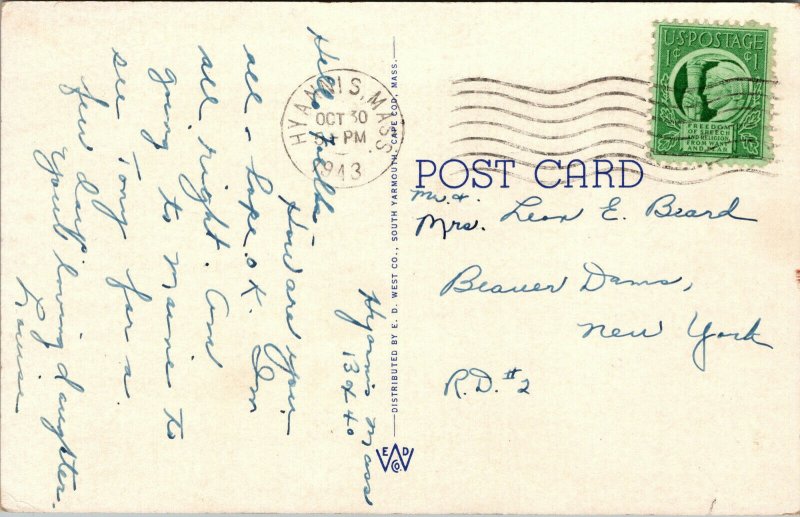 Hyannis Mass
Hello Folks,
How are you
all - hope o.K. I'm
all right. Am
going to Maine to
see Tony for a
few days
Your loving daughter.
Louise
HYANNIS, MASS.
OCT 30
PM
1943
DISTRIBUTED BY E. D. WEST CO., SOUTH YARMOUTH, CAPE COD, MASS.
E D
W
CO
U.S. POSTAGE
1¢ ¢1
FREEDOM
OF SPEECH
AND RELIGION
FROM WANT
AND FEAR
POST CARD
Mr. &
Mrs. Leon E. Beard
Beaver Dams,
New York
R.D. #2